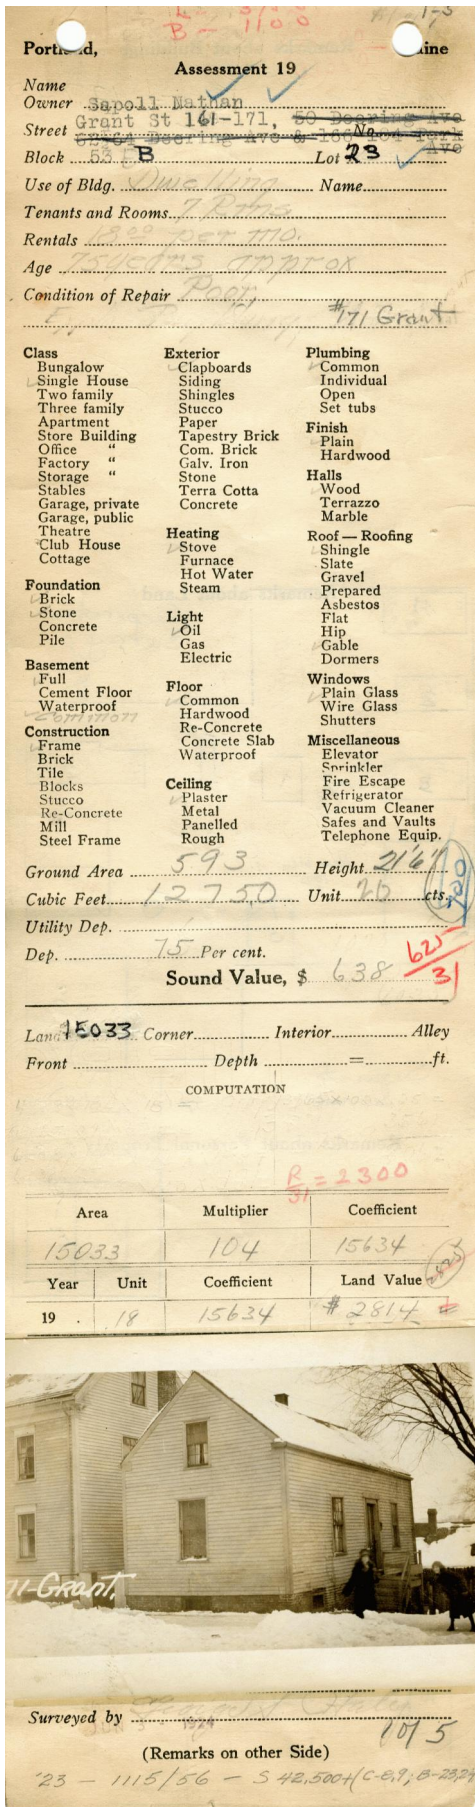 B - 1100
Portland, Maine
Assessment 19
Name
Owner Sapoll Nathan
Street Grant St 161-171, 50 Deering Ave
62-64 Deering Ave & 166-164 Park Ave
Block 53 B Lot No. 23
Use of Bldg. Dwelling Name
Tenants and Rooms 7 Rms
Rentals 18.00 per mo.
Age 75 years approx
Condition of Repair Poor,
#171 Grant
Class
Bungalow
Single House
Two family
Three family
Apartment
Store Building
Office "
Factory "
Storage "
Stables
Garage, private
Garage, public
Theatre
Club House
Cottage
Foundation
Brick
Stone
Concrete
Pile
Basement
Full
Cement Floor
Waterproof
Common
Construction
Frame
Brick
Tile
Blocks
Stucco
Re-Concrete
Mill
Steel Frame
Exterior
Clapboards
Siding
Shingles
Stucco
Paper
Tapestry Brick
Com. Brick
Galv. Iron
Stone
Terra Cotta
Concrete
Heating
Stove
Furnace
Hot Water
Steam
Light
Oil
Gas
Electric
Floor
Common
Hardwood
Re-Concrete
Concrete Slab
Waterproof
Ceiling
Plaster
Metal
Panelled
Rough
Plumbing
Common
Individual
Open
Set tubs
Finish
Plain
Hardwood
Halls
Wood
Terrazzo
Marble
Roof — Roofing
Shingle
Slate
Gravel
Prepared
Asbestos
Flat
Hip
Gable
Dormers
Windows
Plain Glass
Wire Glass
Shutters
Miscellaneous
Elevator
Sprinkler
Fire Escape
Refrigerator
Vacuum Cleaner
Safes and Vaults
Telephone Equip.
Ground Area 593 Height 21'6"
Cubic Feet 12750 Unit 20 cts.
Utility Dep.
Dep. 75 Per cent.
625/31
Sound Value, $ 638
Land 15033 Corner Interior Alley
Front Depth = ft.
COMPUTATION
R/31 = 2300
Area Multiplier Coefficient
15033 104 15634
Year Unit Coefficient Land Value
19 . 18 15634 # 2814
71-Grant.
Surveyed by
1924
1 of 5
(Remarks on other Side)
'23 - 1115/56 - S 42,500+(C-8,9; B-23,24